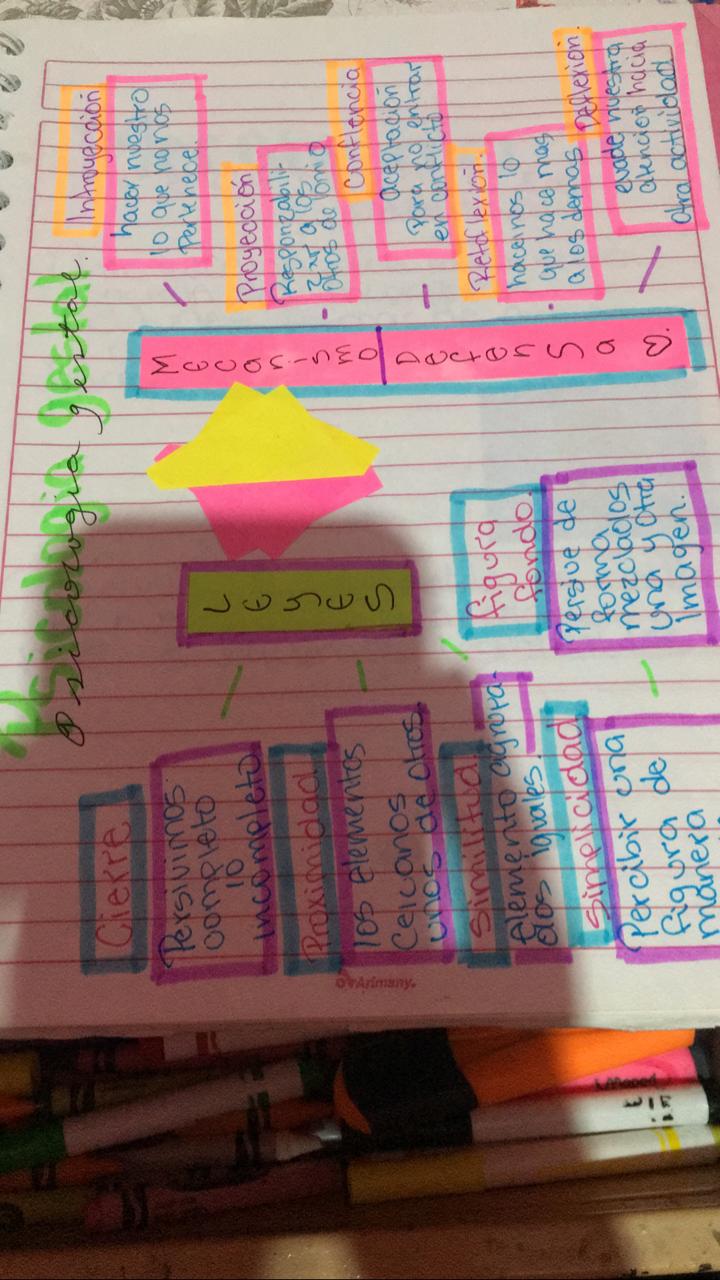 Psicologia gestal.
Psicologia gestal
Leyes
Cierre
Persivimos
completo
lo
incompleto
Proximidad
los elementos
Cercanos
unos de otros.
Similitud.
Elemento agrupa-
dos iguales.
Simplicidad
Percibir una
figura de
manera
figura
fondo.
Persive de
forma
mezclados
una y otra
Imagen.
Mecanismo
Defensa
Introyección
hacer nuestro
lo que no nos
Pertenece.
Proyección
Responzabili-
zar a los
otros de
Confluencia
aceptación
Para no entrar
en conflicto
Retoflexión.
hacernos lo
que hace mas
a los demas
Deflexion.
evade nuestra
atención hacia
otra actividad
Arimany.